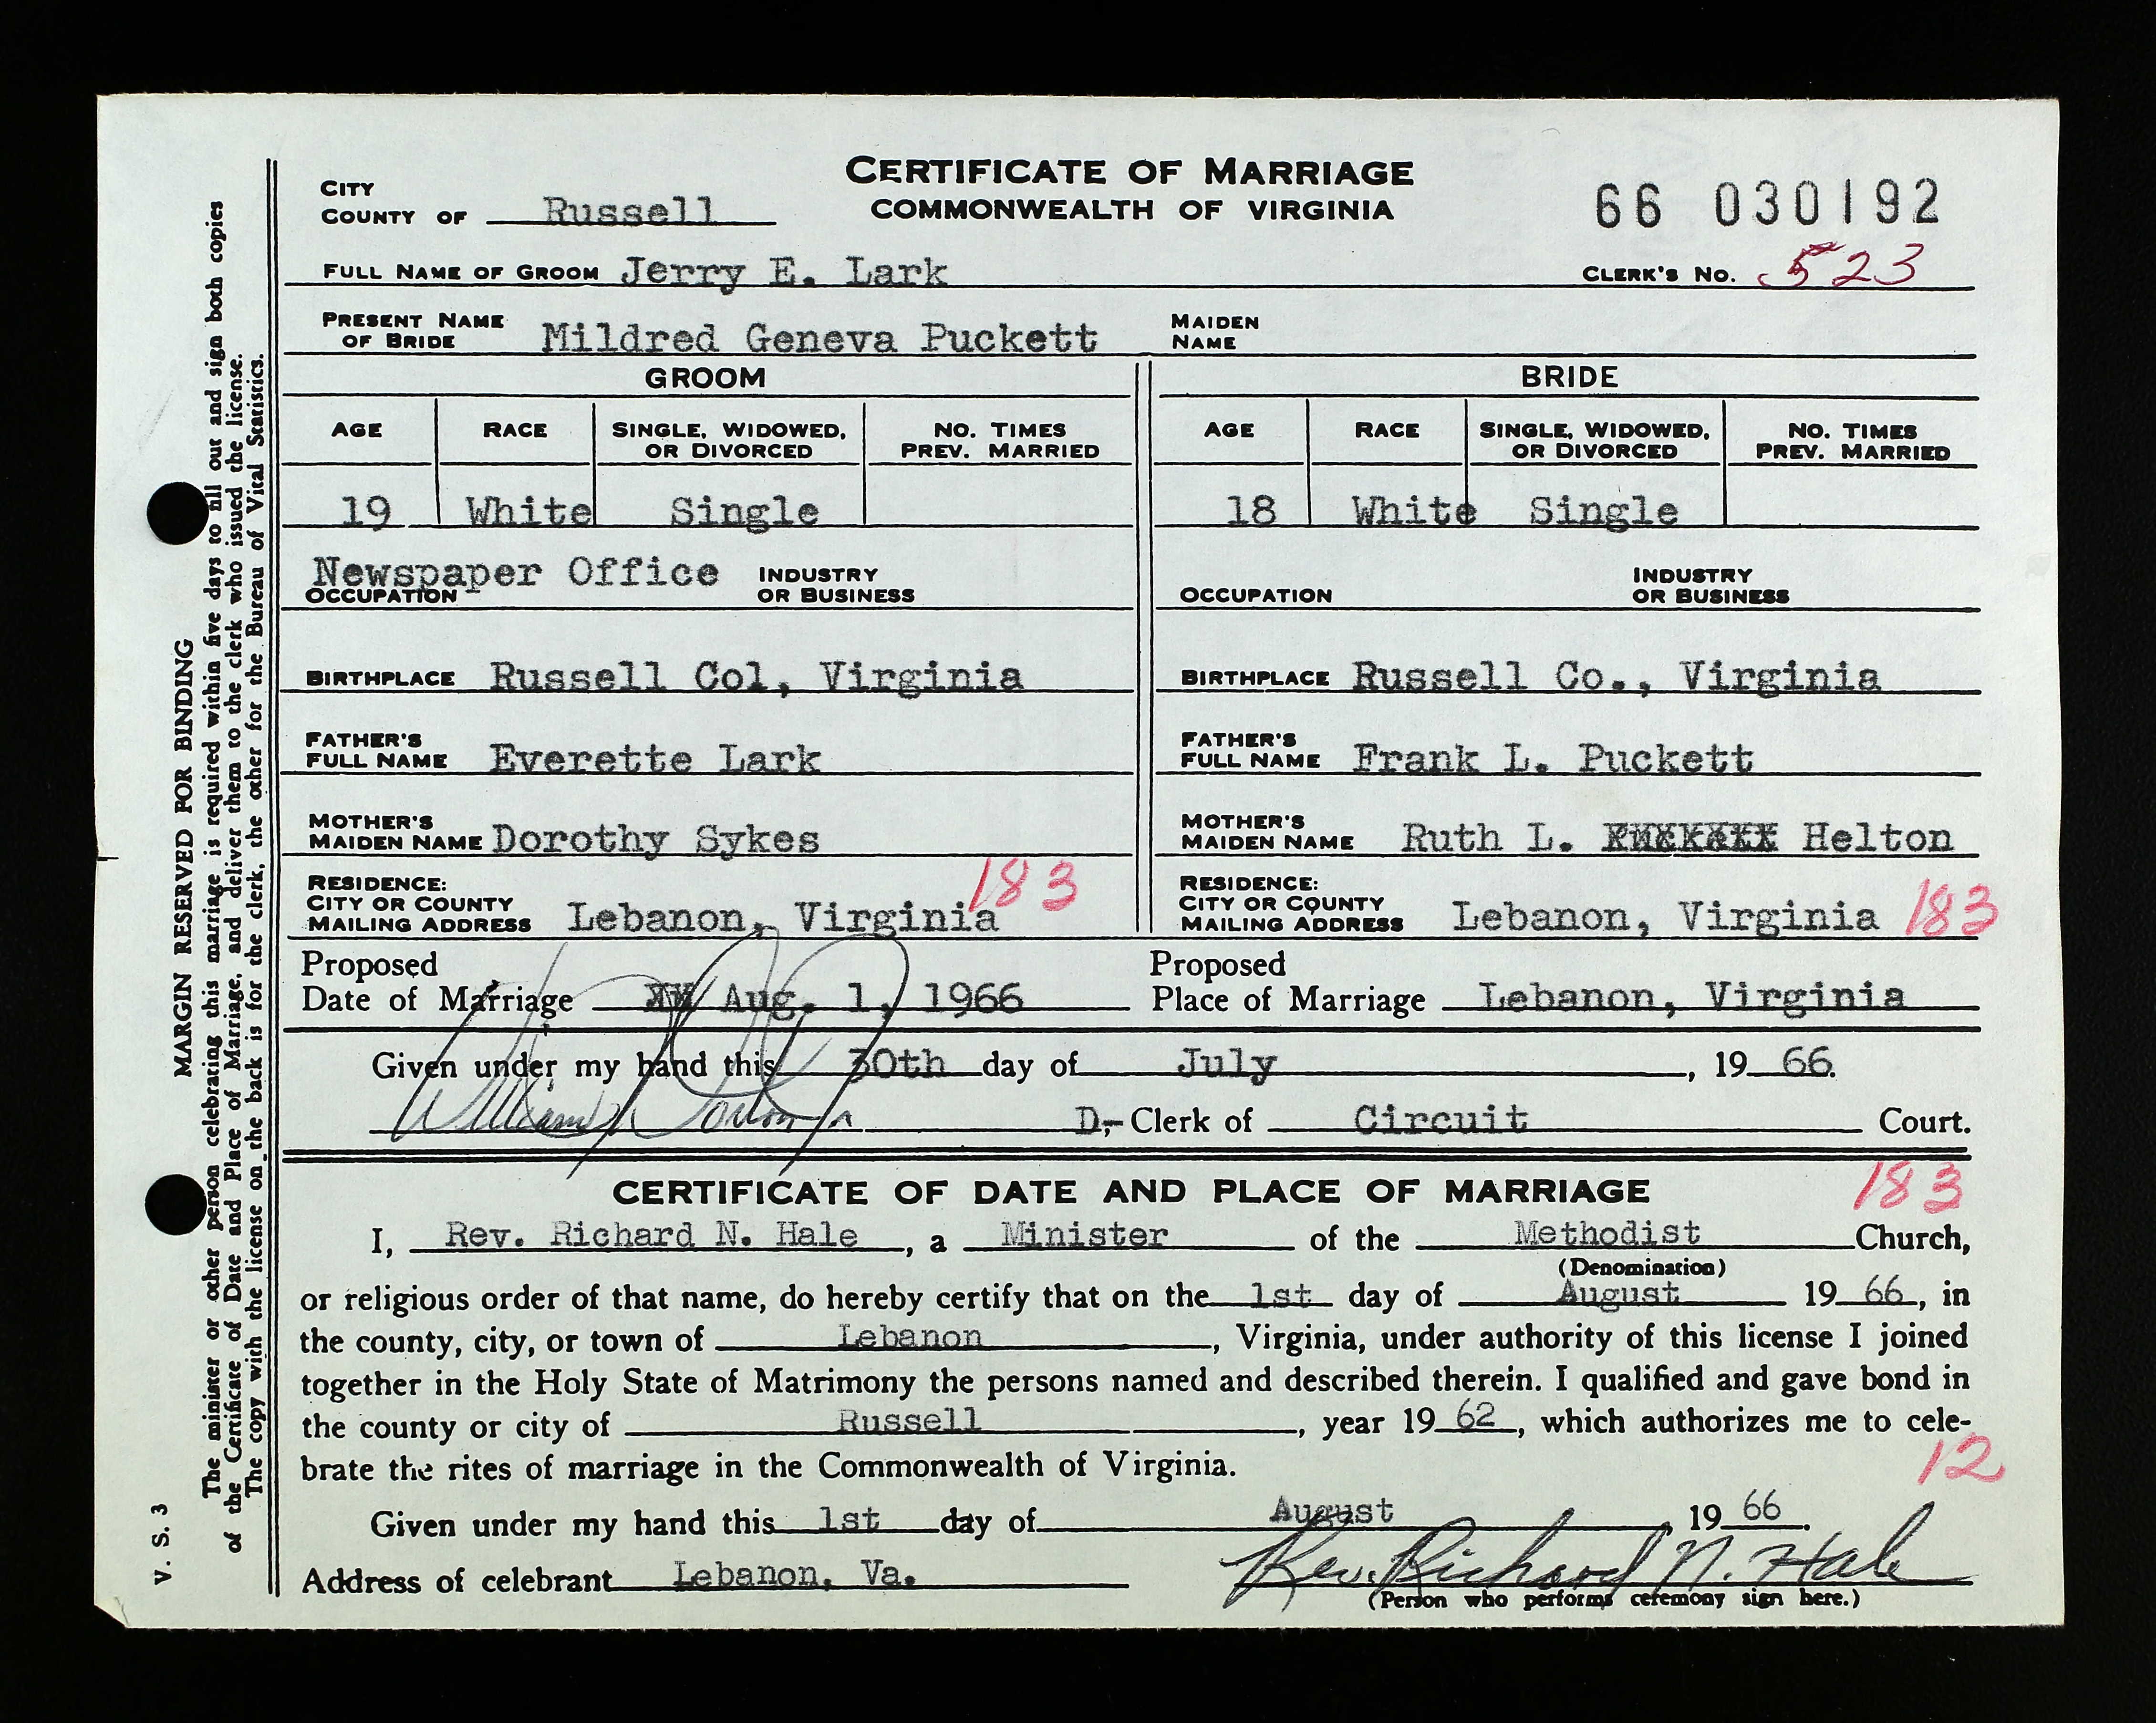 CERTIFICATE OF MARRIAGE
COMMONWEALTH OF VIRGINIA
CITY
COUNTY OF Russell
66 030192
FULL NAME OF GROOM Jerry E. Lark
CLERK'S NO. 523
PRESENT NAME OF BRIDE Mildred Geneva Puckett
MAIDEN NAME
GROOM
BRIDE
AGE RACE SINGLE, WIDOWED, OR DIVORCED NO. TIMES PREV. MARRIED
AGE RACE SINGLE, WIDOWED, OR DIVORCED NO. TIMES PREV. MARRIED
19 White Single
18 White Single
Newspaper Office
OCCUPATION INDUSTRY OR BUSINESS
OCCUPATION INDUSTRY OR BUSINESS
BIRTHPLACE Russell Col, Virginia
BIRTHPLACE Russell Co., Virginia
FATHER'S FULL NAME Everette Lark
FATHER'S FULL NAME Frank L. Puckett
MOTHER'S MAIDEN NAME Dorothy Sykes
MOTHER'S MAIDEN NAME Ruth L. Helton
RESIDENCE:
CITY OR COUNTY 183
MAILING ADDRESS Lebanon, Virginia
RESIDENCE:
CITY OR COUNTY
MAILING ADDRESS Lebanon, Virginia 183
Proposed
Date of Marriage Aug. 1, 1966
Proposed
Place of Marriage Lebanon, Virginia
Given under my hand this 30th day of July, 19 66.
William D,- Clerk of Circuit Court.
CERTIFICATE OF DATE AND PLACE OF MARRIAGE 183
I, Rev. Richard N. Hale, a Minister of the Methodist Church,
(Denomination)
or religious order of that name, do hereby certify that on the 1st day of August 19 66, in
the county, city, or town of Lebanon, Virginia, under authority of this license I joined
together in the Holy State of Matrimony the persons named and described therein. I qualified and gave bond in
the county or city of Russell, year 19 62, which authorizes me to cele-
brate the rites of marriage in the Commonwealth of Virginia. 12
Given under my hand this 1st day of August 19 66.
Address of celebrant Lebanon, Va. Rev. Richard N. Hale
(Person who performs ceremony sign here.)
MARGIN RESERVED FOR BINDING
The minister or other person celebrating this marriage is required within five days to fill out and sign both copies
of the Certificate of Date and Place of Marriage, and deliver them to the clerk who issued the license.
The copy with the license on the back is for the clerk, the other for the Bureau of Vital Statistics.
V. S. 3